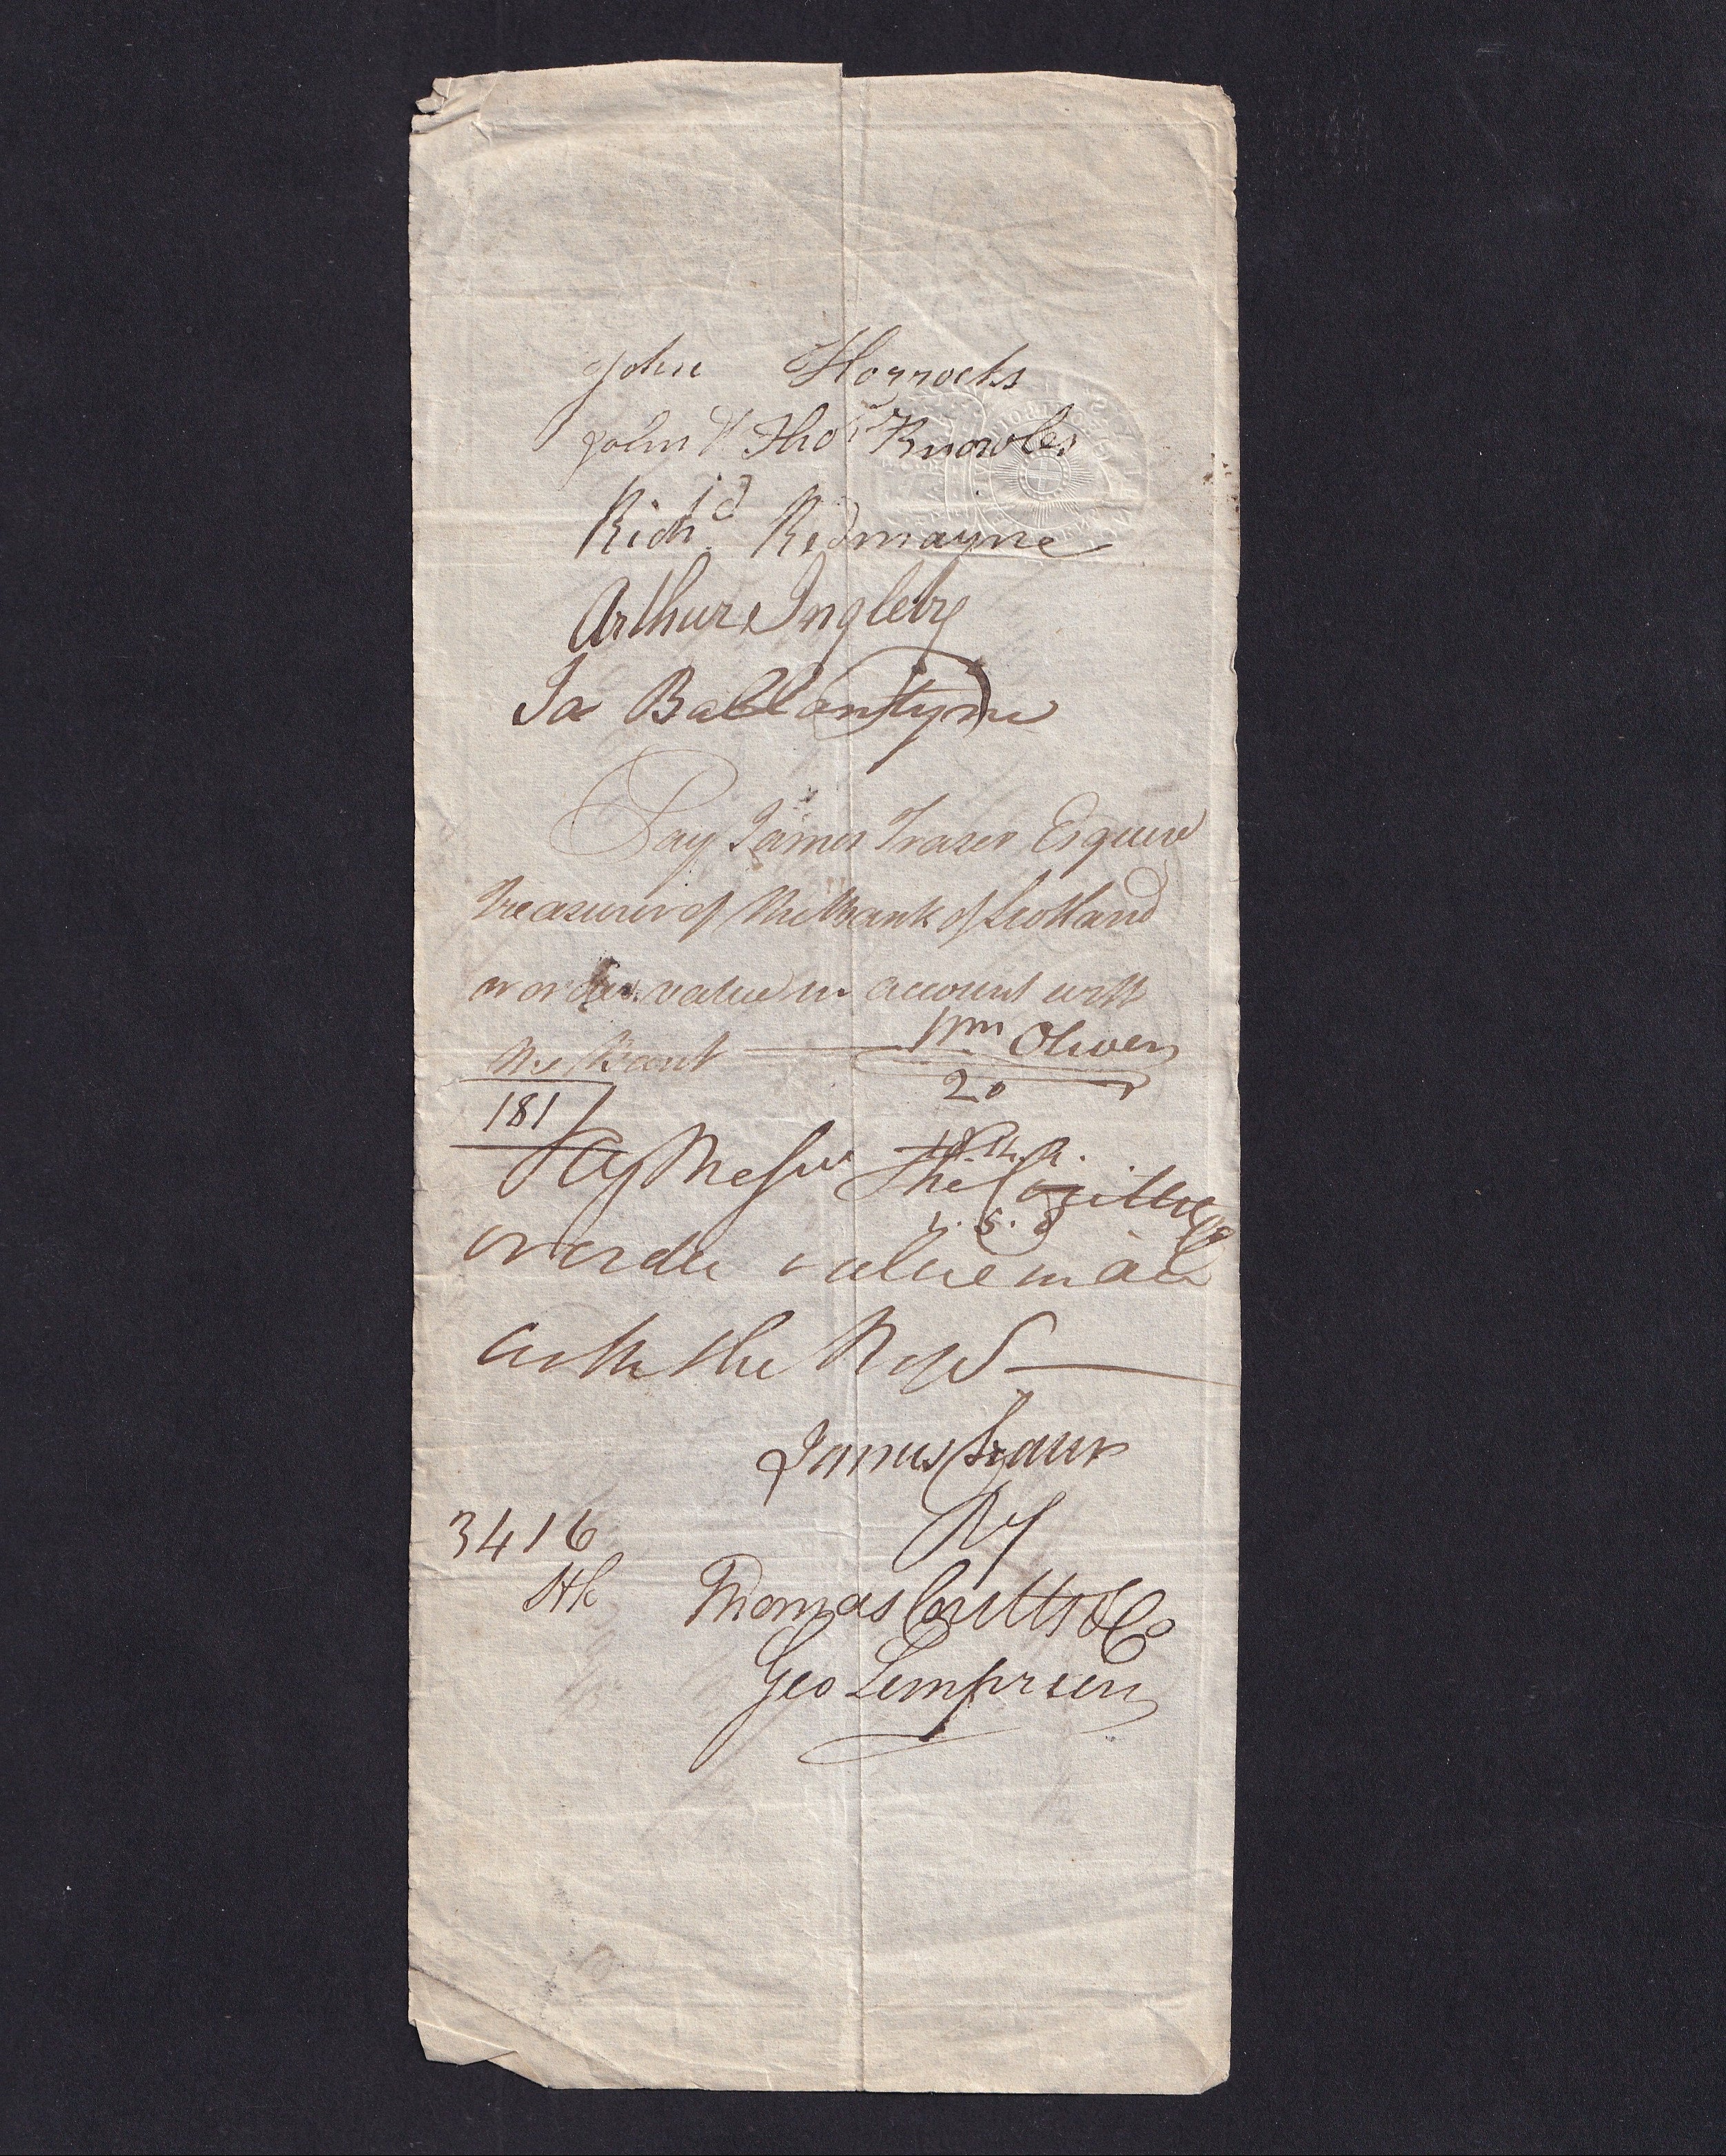 John Horrocks
John & Thos Knowles
Richd Redmayne
Arthur Ingleby
Ja Ballantyne
Pay James Fraser Esquire
Treasurer of the Bank of Scotland
or order value in account with
the Bank Wm Oliver
181 20
Pay Messrs Tho Coutts & Co
or order value in a/c
with the
James Fraser
3416
Thomas Coutts & Co
Geo Lempriere